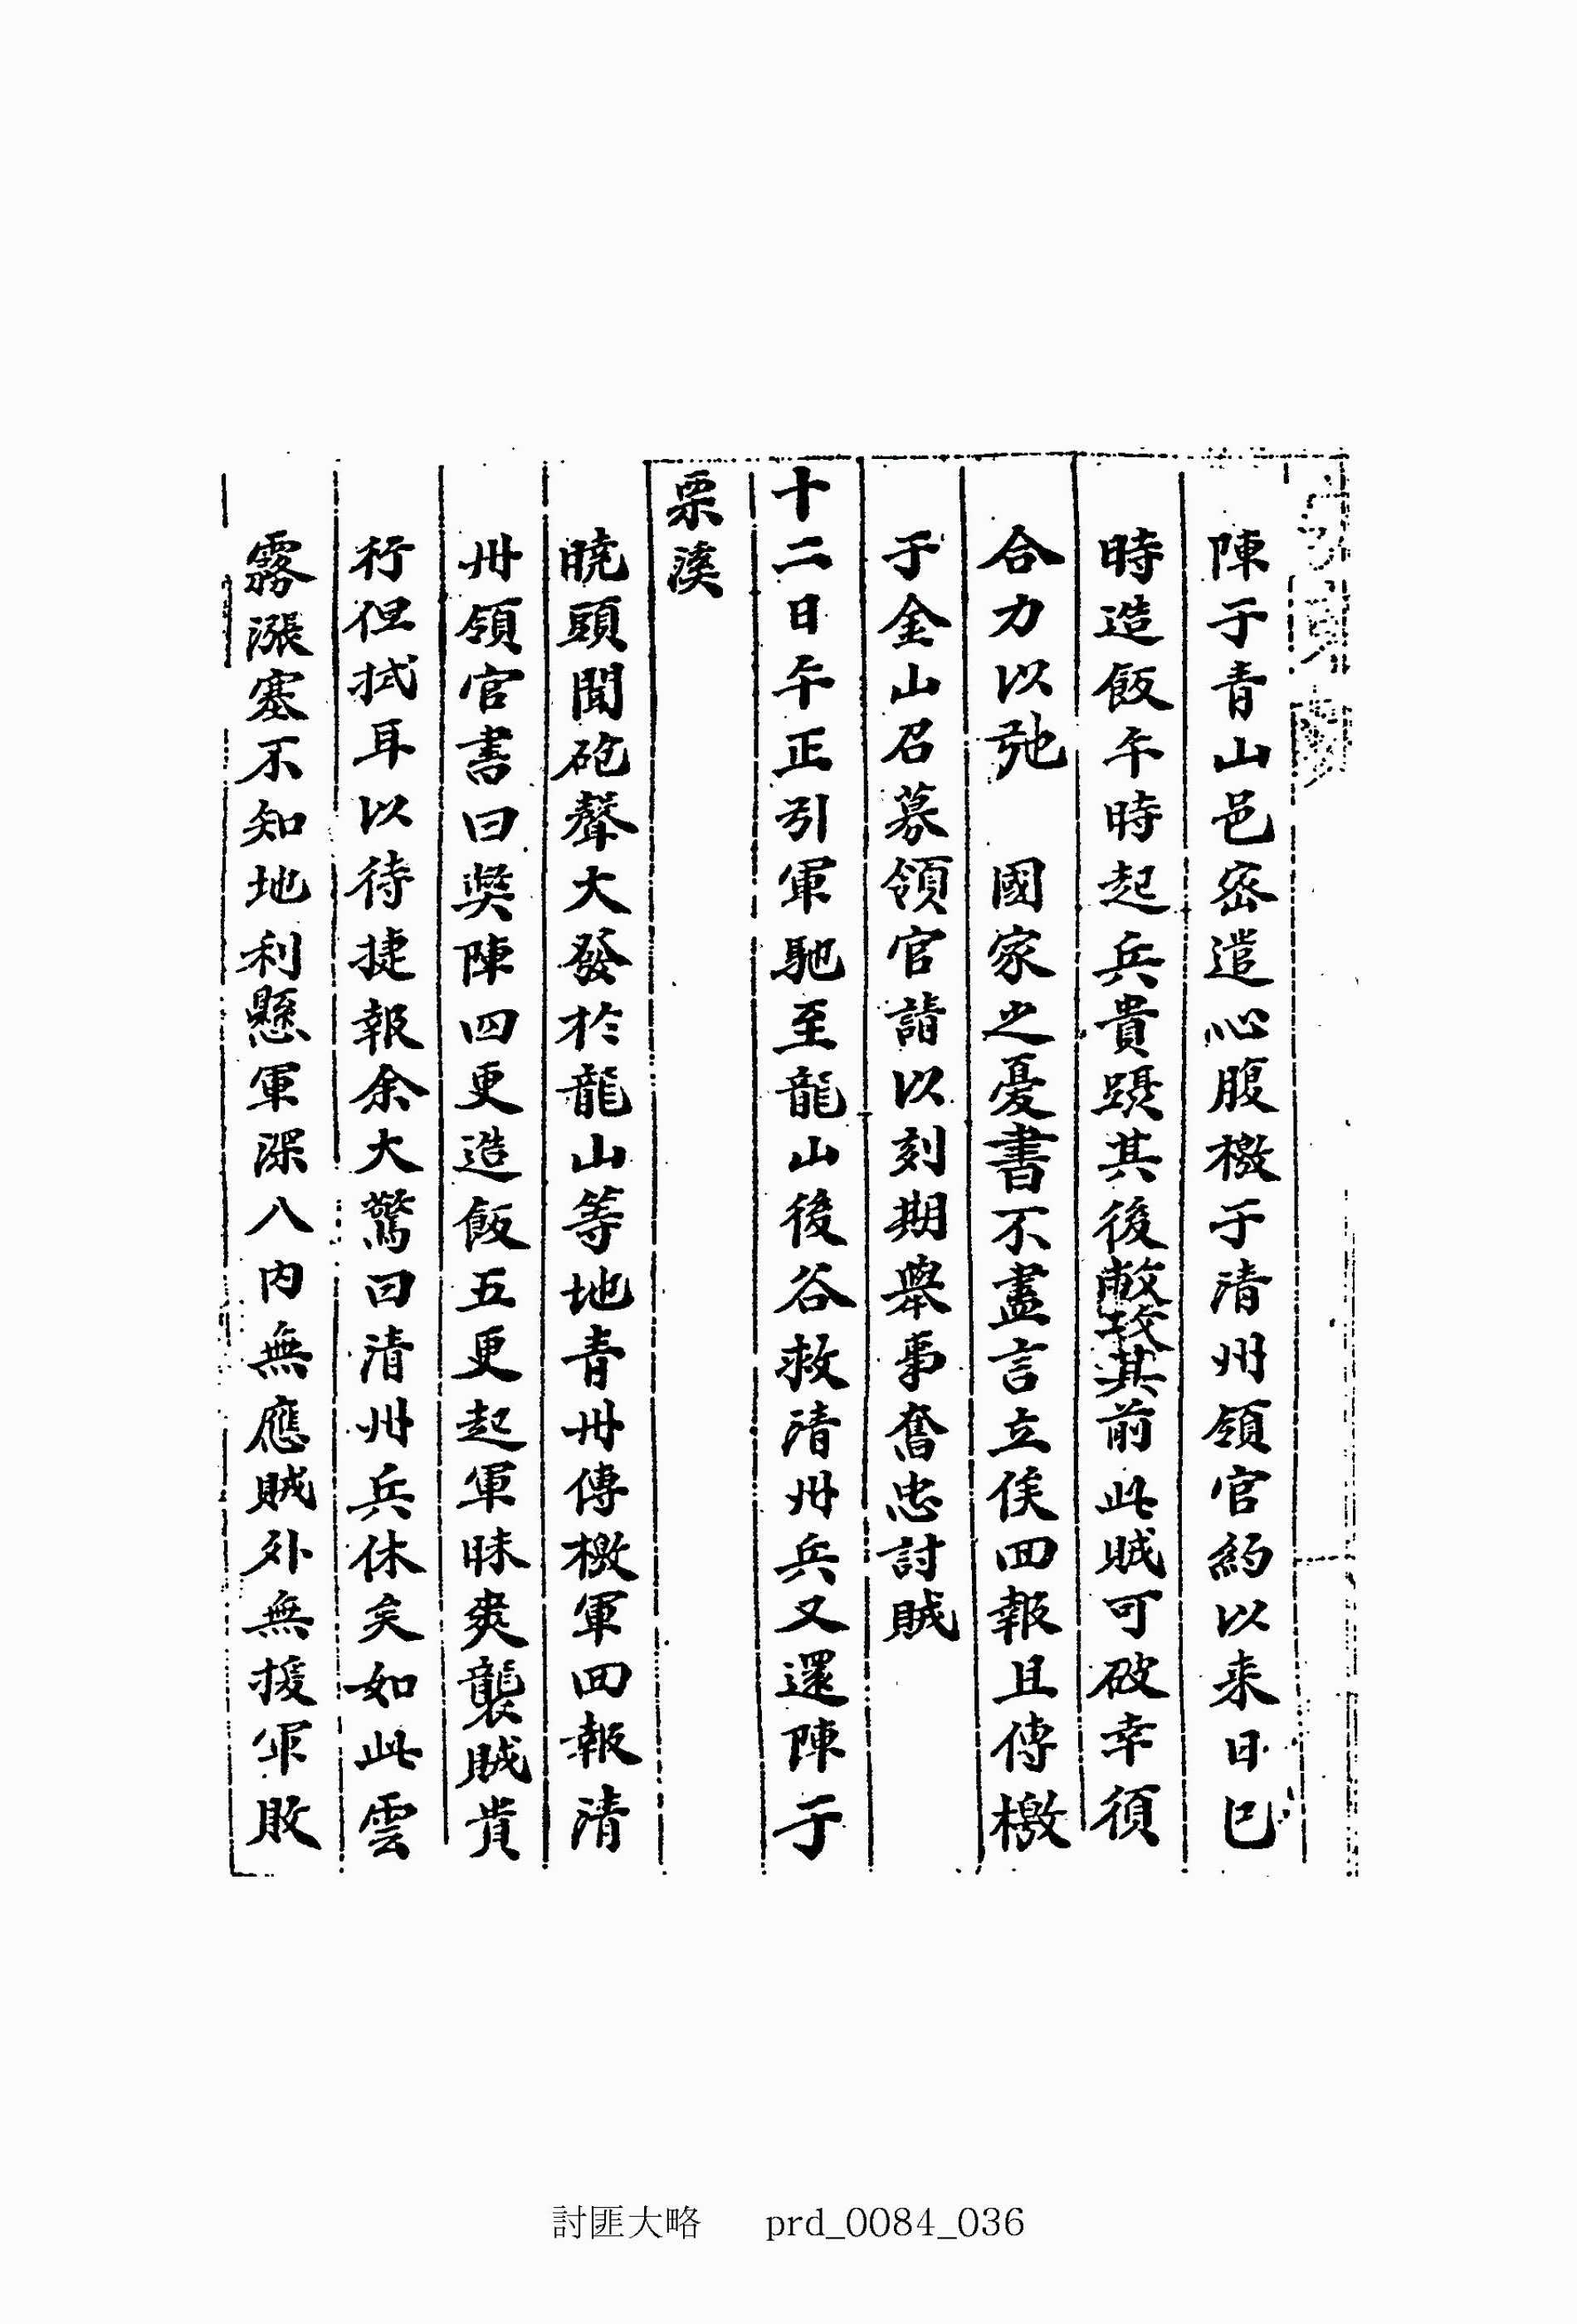 陣于靑山邑密遣心腹檄于清州領官約以来日巳
時造飯午時起兵貴躡其後敝攻其前此賊可破幸須
合力以弛　國家之憂書不盡言立俟回報且傳檄
于金山召募領官請以刻期擧事奮忠討賊
十二日午正引軍馳至龍山後谷救清州兵又還陣于
栗溪
曉頭聞砲聲大發於龍山等地青州傳檄軍回報清
州領官書曰弊陣四更造飯五更起軍昧爽襲賊貴
行但拭耳以待捷報余大驚曰清州兵休矣如此雲
霧漲塞不知地利懸軍深入内無應賊外無援軍敗
討匪大略 prd_0084_036